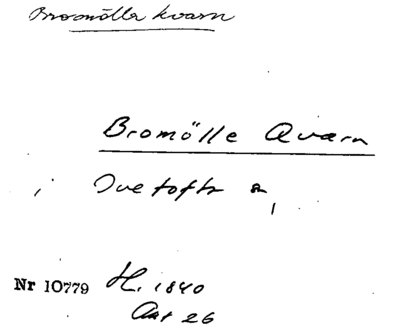 Bromölla kvarn
Bromölle Qvarn
i Ivetofts sn
Nr 10779 H. 1840
Akt 26